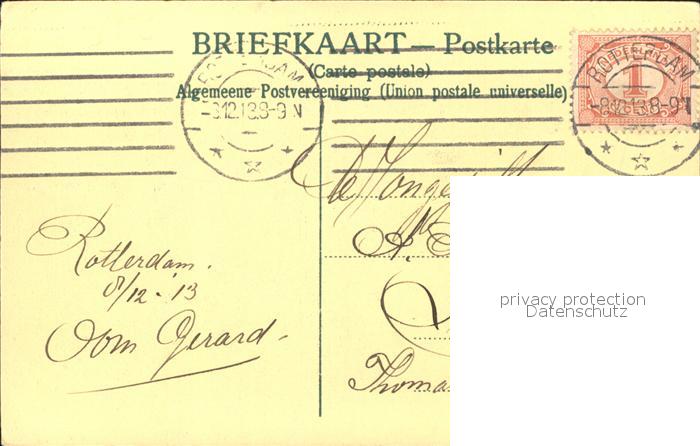 BRIEFKAART — Postkarte
(Carte postale)
Algemeene Postvereeniging (Union postale universelle)
ROTTERDAM
-8.12.13.8-9 N
NEDERLAND
1
ROTTERDAM
-8.12.13.8-9 N
Rotterdam.
8/12-'13
Oom Gerard-
De
A.
Thoma
privacy protection
Datenschutz